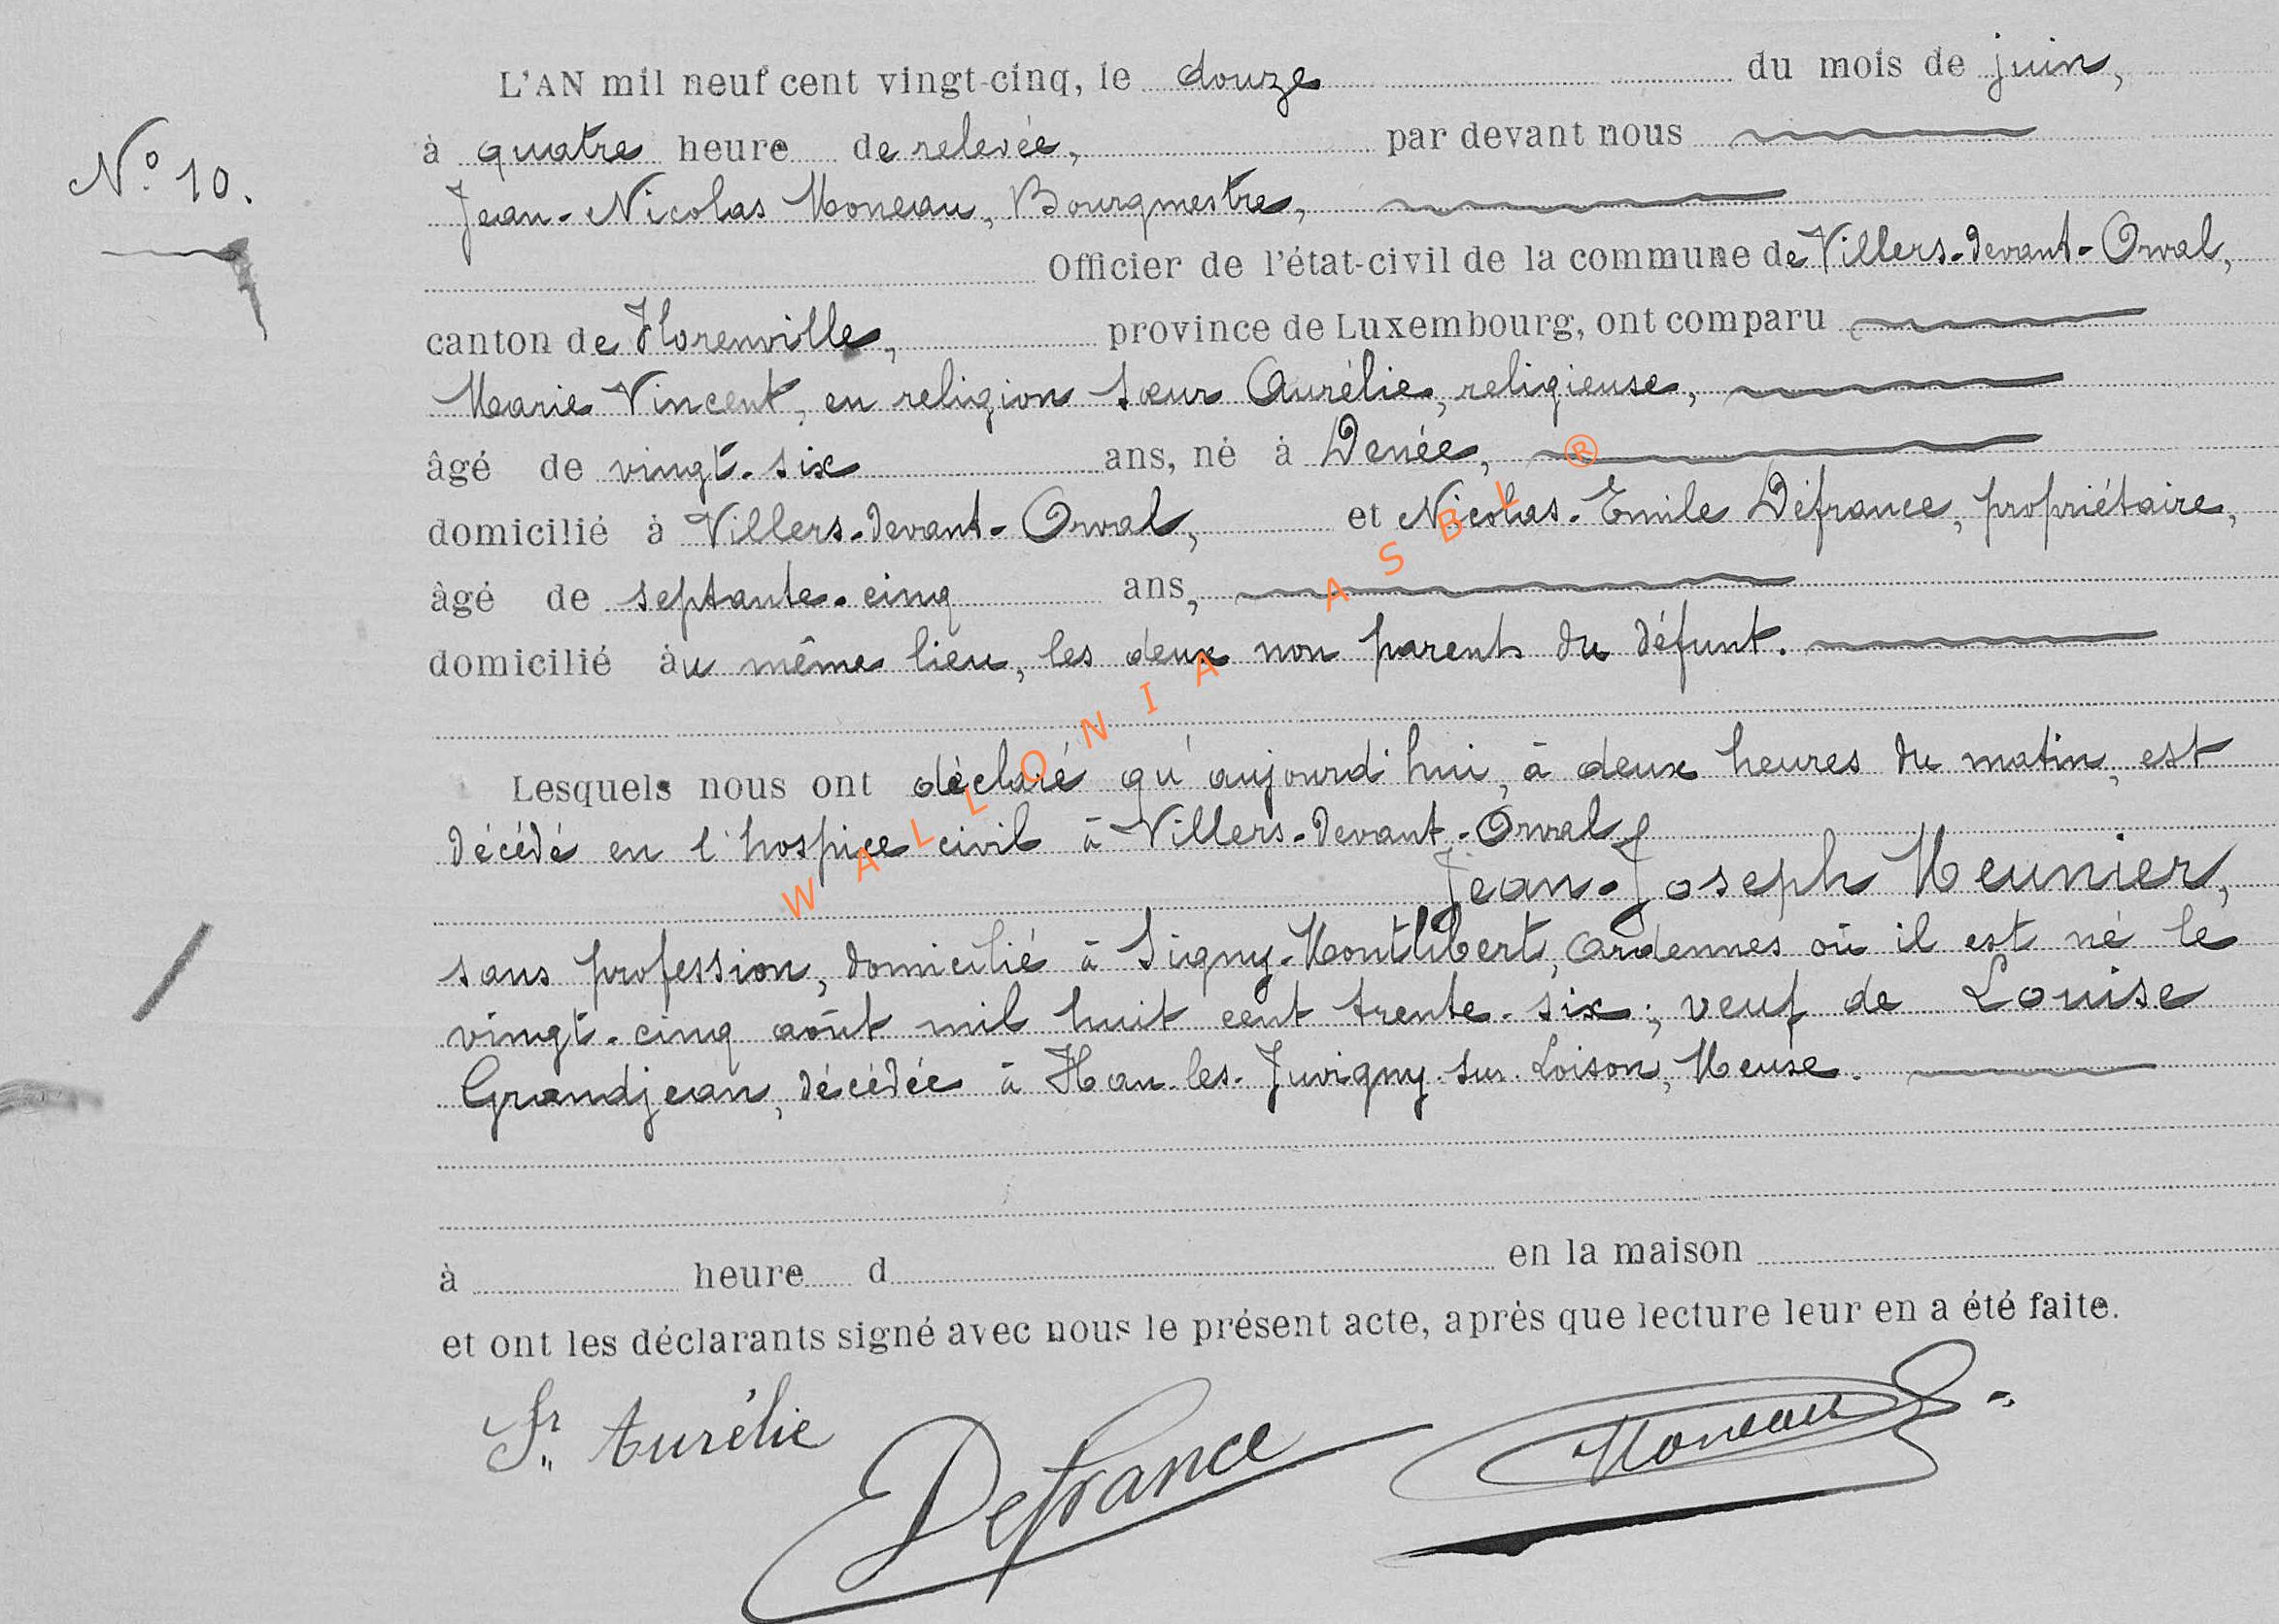 L'AN mil neuf cent vingt-cinq, le douze du mois de juin,
à quatre heure de relevée, par devant nous
N.º 10.
Jean-Nicolas Moneau, Bourgmestre,
Officier de l'état-civil de la commune de Villers-devant-Orval,
canton de Florenville, province de Luxembourg, ont comparu
Marie Vincent, en religion sœur Aurélie, religieuse,
âgé de vingt-six ans, né à Denée,
domicilié à Villers-devant-Orval, et Nicolas-Emile Défrance, propriétaire,
âgé de septante-cinq ans,
domicilié àu même lieu, les deux non parents du défunt.
Lesquels nous ont déclaré qu'aujourd'hui, à deux heures du matin, est
décédé en l'hospice civil à Villers-devant-Orval,
Jean-Joseph Meunier,
sans profession, domicilié à Signy-Montlibert, Ardennes où il est né le
vingt-cinq août mil huit cent trente-six; veuf de Louise
Grandjean, décédée à Han-les-Juvigny-sur-Loison, Meuse.
à heure d en la maison
et ont les déclarants signé avec nous le présent acte, après que lecture leur en a été faite.
Sr Aurélie
Defrance
Moneau
WALLONIA ASBL ®